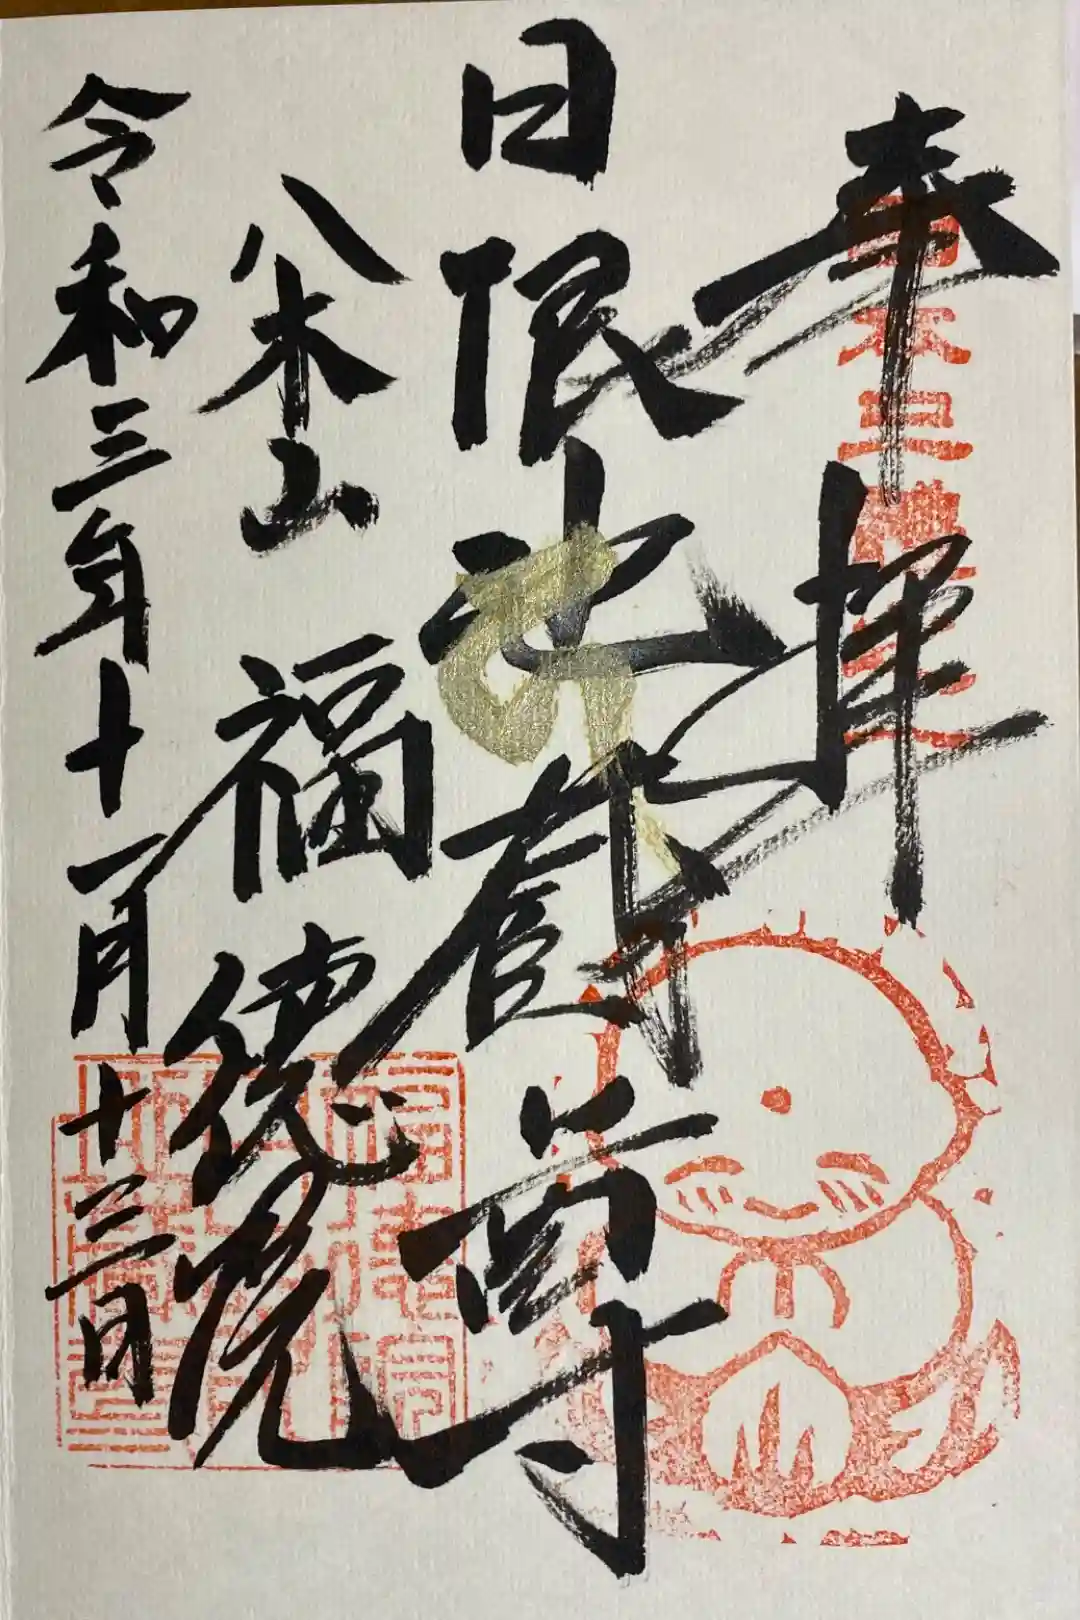 奉拝
日限地蔵尊
八木山 福徳院
令和三年十一月十三日